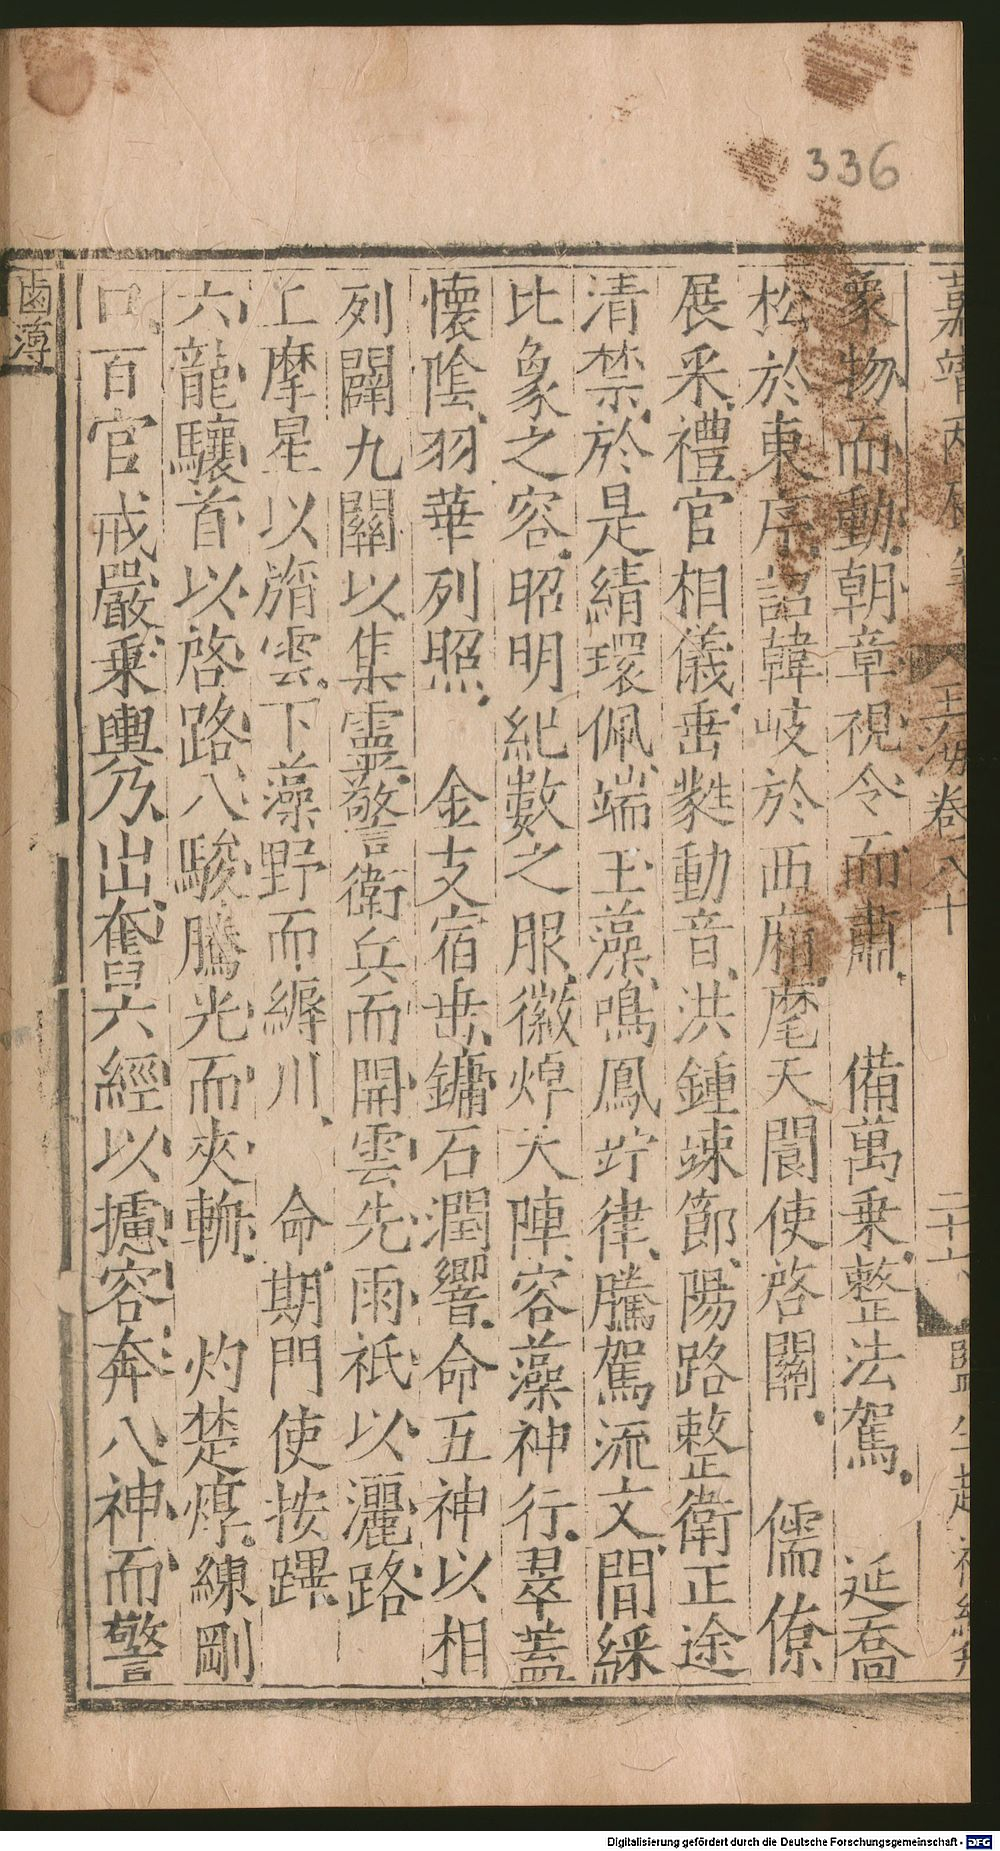 336
玉海卷八十
二十六
象物而動朝章視令而肅 備萬乗整法駕 延喬
松於東序詔韓岐於西廂麾天閽使啓關 儒僚
展釆禮官相儀垂㽔動音洪鍾竦節陽路整衛正途
清禁於是綪環佩端玉藻鳴鳳竚律騰駕流文間綵
比象之容昭明紀數之服徽焯大陣容藻神行翠蓋
懷陰羽華列照 金支宿垂鏞石潤響命五神以相
列闢九關以集靈警衛兵而開雲先雨祇以灑路
上摩星以旓雲下藻野而縟川 命期門使按蹕
六龍驤首以啓路八駿騰光而夾輈 灼楚焞練剛
日百官戒嚴乗輿乃出奮六經以攄容奔八神而警
鹵薄
Digitalisierung gefördert durch die Deutsche Forschungsgemeinschaft - DFG